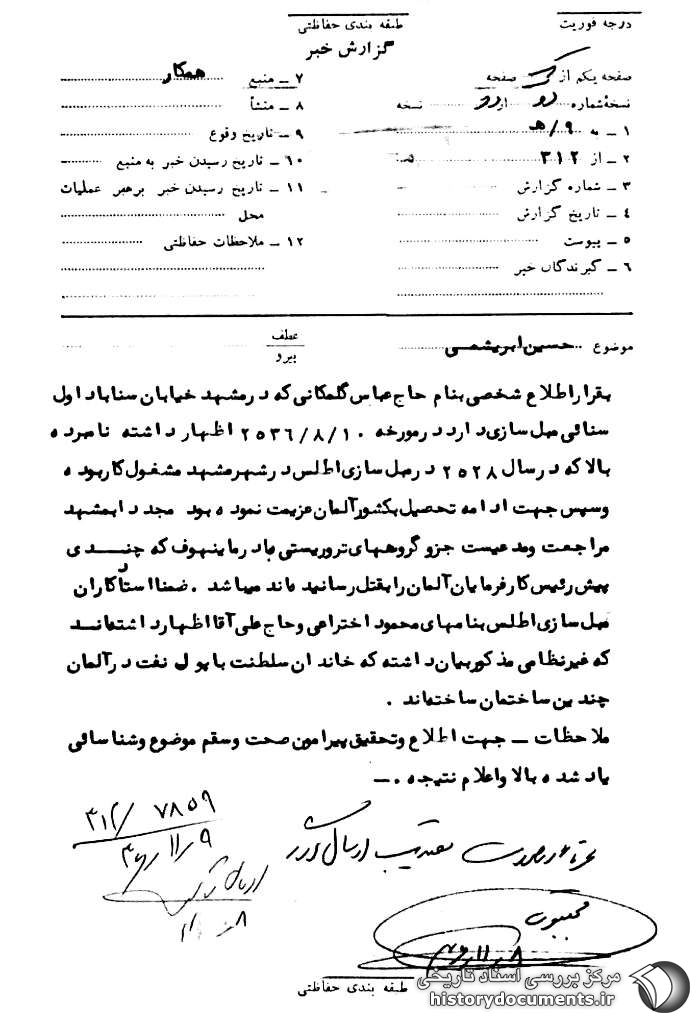 درجه فوریت
طبقه بندی حفاظتی
گزارش خبر
صفحه یکم از یک صفحه
نسخهٔ شماره دو از دو نسخه
۱ ــ به ۹/هـ
۲ ــ از ۳۱۲
۳ ــ شماره گزارش
۴ ــ تاریخ گزارش
۵ ــ پیوست
۶ ــ گیرندگان خبر
۷ ــ منبع همکار
۸ ــ منشأ
۹ ــ تاریخ وقوع
۱۰ ــ تاریخ رسیدن خبر به منبع
۱۱ ــ تاریخ رسیدن خبر برهبر عملیات
محل
۱۲ ــ ملاحظات حفاظتی
موضوع حسین ابریشمی
عطف
پیرو
بقرار اطلاع شخصی بنام حاج عباس گلمکانی که در مشهد خیابان سناباد اول
سنائی مبل سازی دارد در مورخه ۲۵۳۶/۸/۱۰ اظهار داشته نامبرده
بالا که در سال ۲۵۲۸ در مبل سازی اطلس در شهر مشهد مشغول کار بوده
و سپس جهت ادامه تحصیل بکشور آلمان عزیمت نموده بود مجددا بمشهد
مراجعت ومدعیست جزو گروههای تروریستی بادرماینهوف که چنــدی
پیش رئیس کارفرمایان آلمان را بقتل رسانیده‌اند میباشد . ضمنا استادکاران
مبل سازی اطلس بنامهای محمود اختراعی و حاج علی آقا اظهار داشته‌انــد
که غیرنظامی مذکور بیان داشته که خاندان سلطنت با پول نفت در آلمان
چندین ساختمان ساخته‌اند .
ملاحظات ــ جهت اطلاع و تحقیق پیرامون صحت و سقم موضوع و شناسائی
یاد شده بالا و اعلام نتیجه .ــ
۳۱۲/ ۷۸۵۹
۳۶/۱۱/۹
متعاقب ارسال گردد
۳۶/۱۱/۸
طبقه بندی حفاظتی
مرکز بررسی اسناد تاریخی
historydocuments.ir